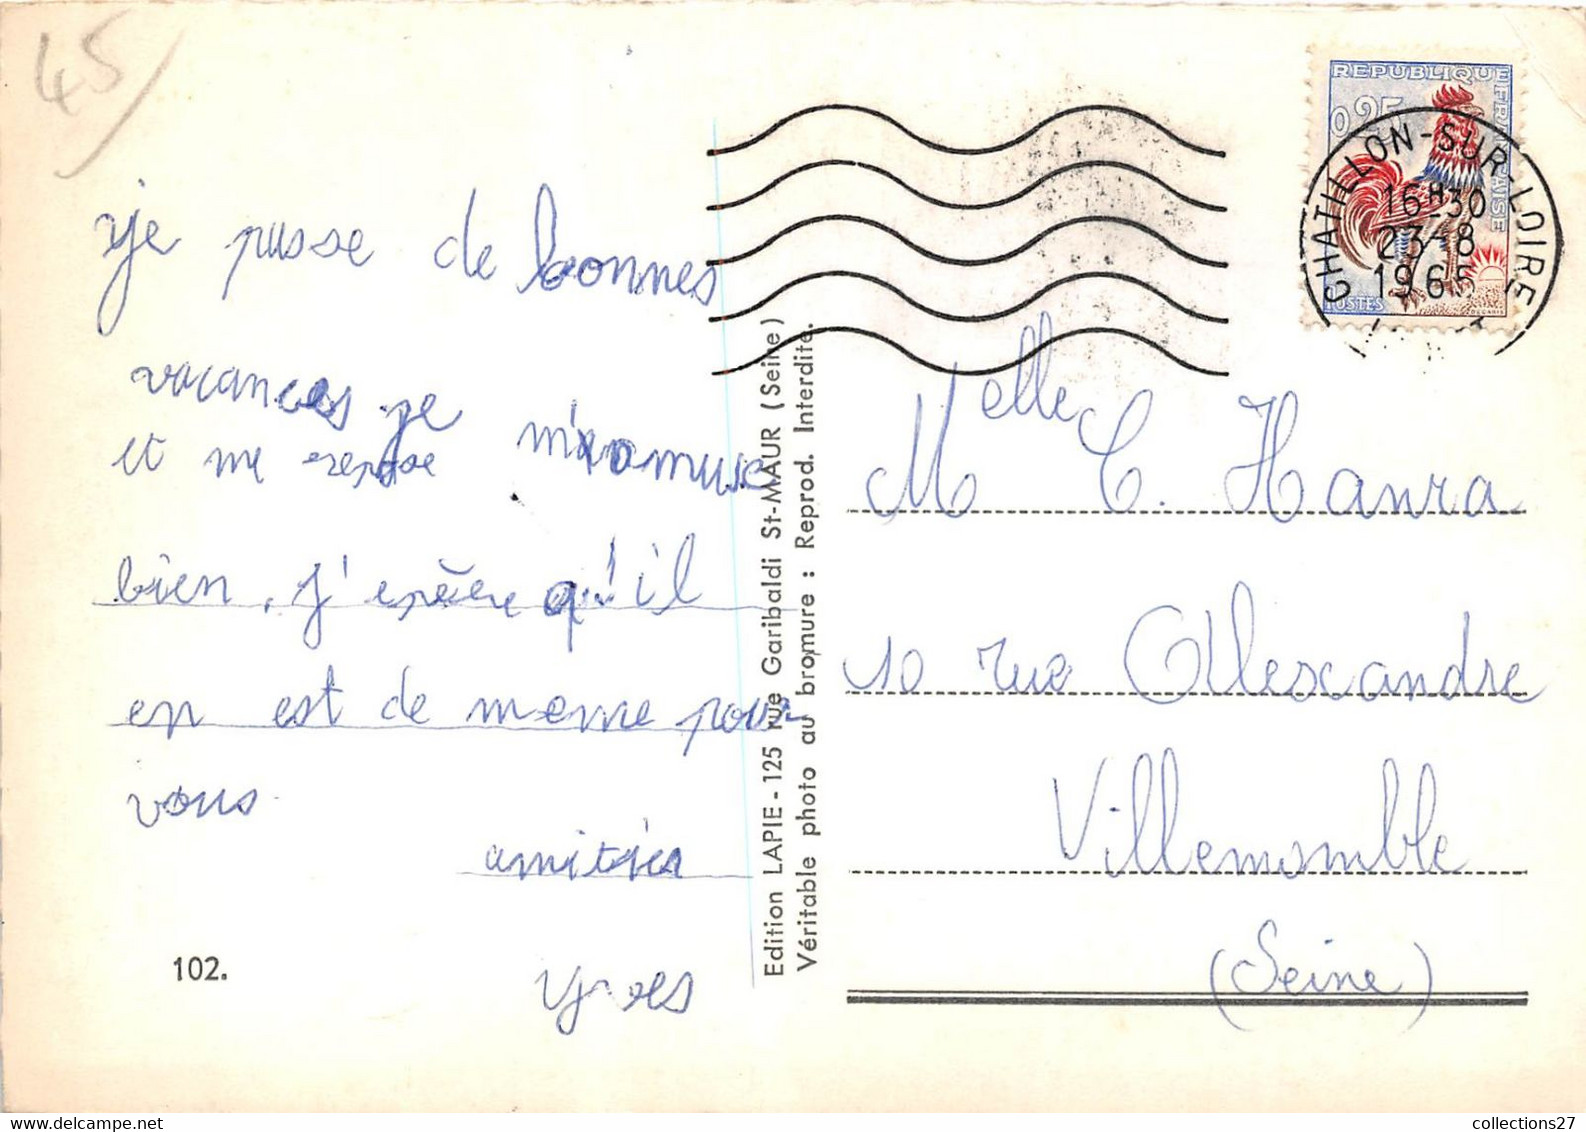 45
je passe de bonnes
vacances je m'amuse
et me repose
bien, j'espère qu'il
en est de meme pour
vous
amitiés
Yves
102.
Edition LAPIE - 125 rue Garibaldi St-MAUR (Seine)
Véritable photo au bromure : Reprod. Interdite.
REPUBLIQUE FRANÇAISE
0,25
POSTES
DECARIS
CHATILLON-SUR-LOIRE
16H30
23-8
1965
Melle C. Hanra
10 rue Alexandre
Villemomble
(Seine)
collections27